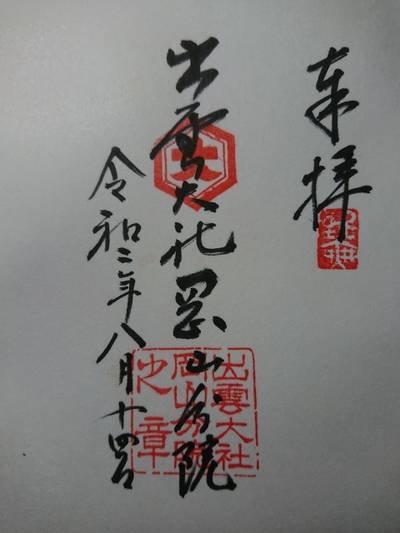 奉拝
出雲大社岡山分院
令和二年八月十四日
出雲大社
岡山分院
之章